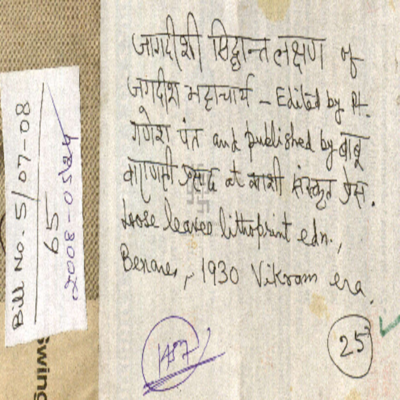 जागदीशी सिद्धान्त लक्षण of
जगदीश भट्टाचार्य - Edited by Pt.
गणेश पंत and published by बाबू
वाराणसी प्रसाद at काशी संस्कृत प्रेस.
Loose leaves lithoprint edn.,
Benares, 1930 Vikram era.
25
1457
Bill No. 5/07-08
65
2008-0524
wing